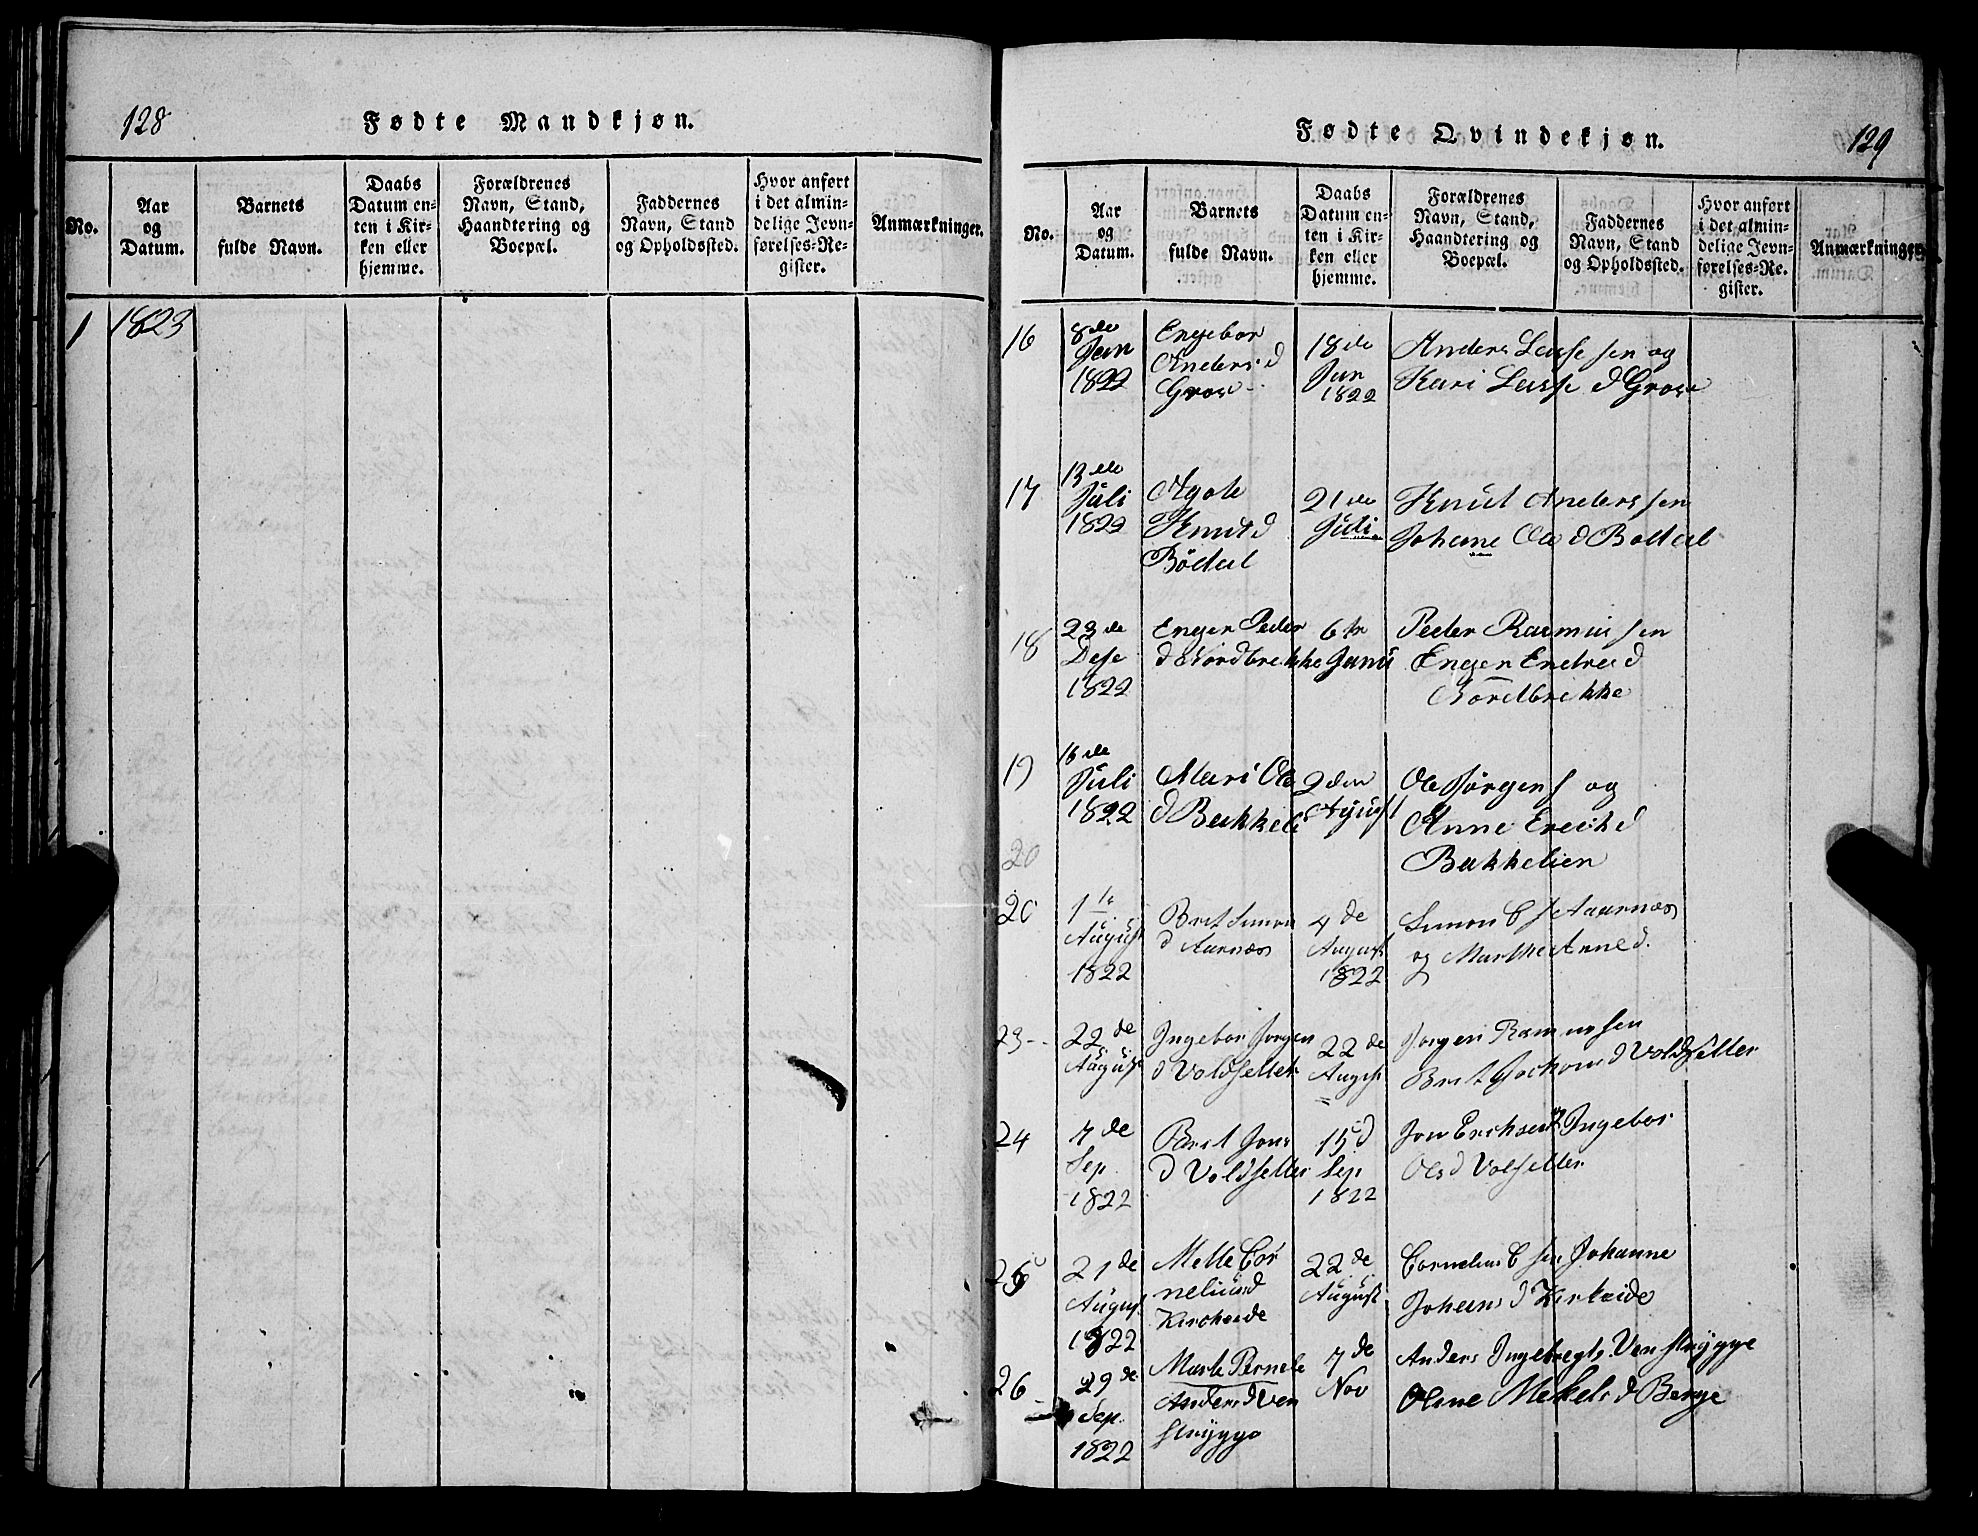 128
Fødte Mandkjøn.
No.
Aar
og
Datum.
Barnets
fulde Navn.
Daabs
Datum en-
ten i Kir-
ken eller
hjemme.
Forældrenes
Navn, Stand,
Haandtering og
Boepæl.
Faddernes
Navn, Stand
og Opholdssted.
Hvor anført
i det almin-
delige Jevn-
førelses-Re-
gister.
Anmærkninger.
1 1823
Fødte Qvindekjøn.
129
No.
Aar
og
Datum.
Barnets
fulde Navn.
Daabs
Datum en-
ten i Kir-
ken eller
hjemme.
Forældrenes
Navn, Stand,
Haandtering og
Boepæl.
Faddernes
Navn, Stand
og Opholdssted.
Hvor anført
i det almin-
delige Jevn-
førelses-Re-
gister.
Anmærkninger.
16
8de
Jun
1822
Engebor
Anders d
Groe
18de
Jun
1822
Anders Lassesen og
Kari Lasse d Groe
17
13de
Juli
1822
Agate
Knut d
Bödal
21de
Juli
Knut Anderssen
Johane Ole d Bodal
18
23de
Dese
1822
Enger Peder
d Nordbrekke
6te
Janu
Peder Rasmussen
Enger Endre d
Nordbrekke
19
16de
Juli
1822
Mari Ole
d Bakkeli
2den
Agust
Ole Jörgens og
Anne Ereck d
Bakkelien
20
20
1te
August
1822
Brit Simon
d Aarnæs
4de
August
1822
Simon C s Aaarnæs
og Marthe Anne d.
23
22de
August
Ingebor Jorgen
d Voldsetter
22de
Augst
Jorgen Rasmussen
Brit Jochom d Voldsetter
24
7de
Sep
1822
Brit Jons
d Voldsetter
15d
Sep
1822
Jon Erichsen Ingebor
Ols d Volsetter
25
21de
August
1822
Mette Cor
nelius d
Kircheide
22de
August
Cornelius C sen Johanne
Johans d Kirkeide
26
29de
Sep.
1822
Marte Pernele
Anders d Ven
strÿgge
7de
Nov
Anders Ingebregts Venstrÿgge
Oline Mekels d Berge